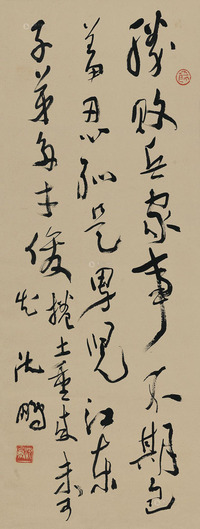 勝敗兵家事不期包
羞忍恥是男兒江東
子弟多才俊捲土重來未可
知 沈鵬